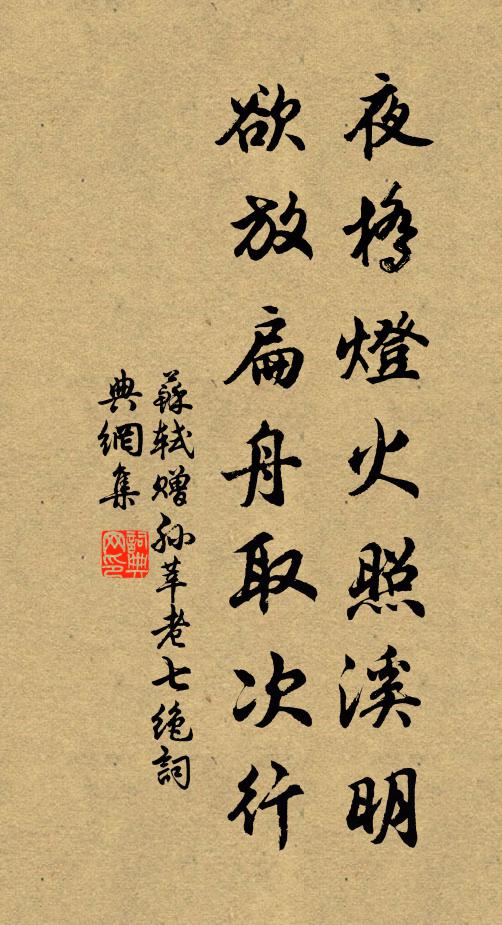 夜橋燈火照溪明
欲放扁舟取次行
蘇軾贈孫莘老七絕詞
典網集
詞典
网印